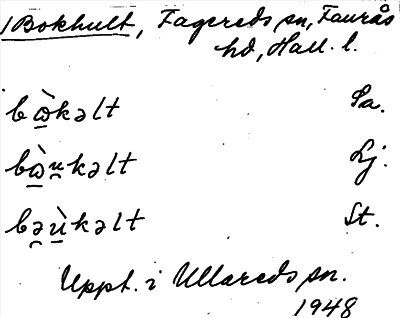 Bokhult, Fagereds sn, Faurås
hd, Hall. l.
bὼ̲kəlt Sa.
bὼ̲u̯kəlt Lj.
bə̯ù̲kəlt St.
Uppt. i Ullareds sn.
1948